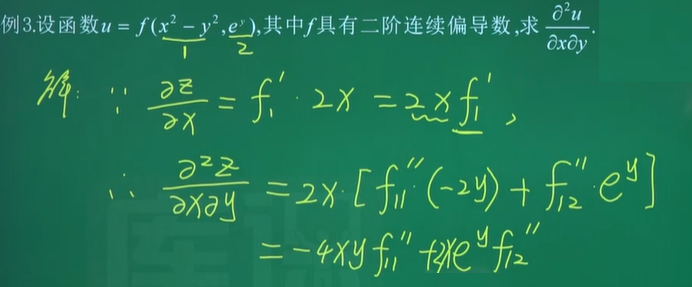 例3.设函数u = f(x² − y², eʸ),其中f具有二阶连续偏导数,求 ∂²u/∂x∂y.
1 2
解: ∵ ∂z/∂x = f₁′ · 2x = 2x f₁′ ,
∴ ∂²z/∂x∂y = 2x·[f₁₁″(-2y) + f₁₂″·eʸ]
= -4xy f₁₁″ + 2xeʸ f₁₂″